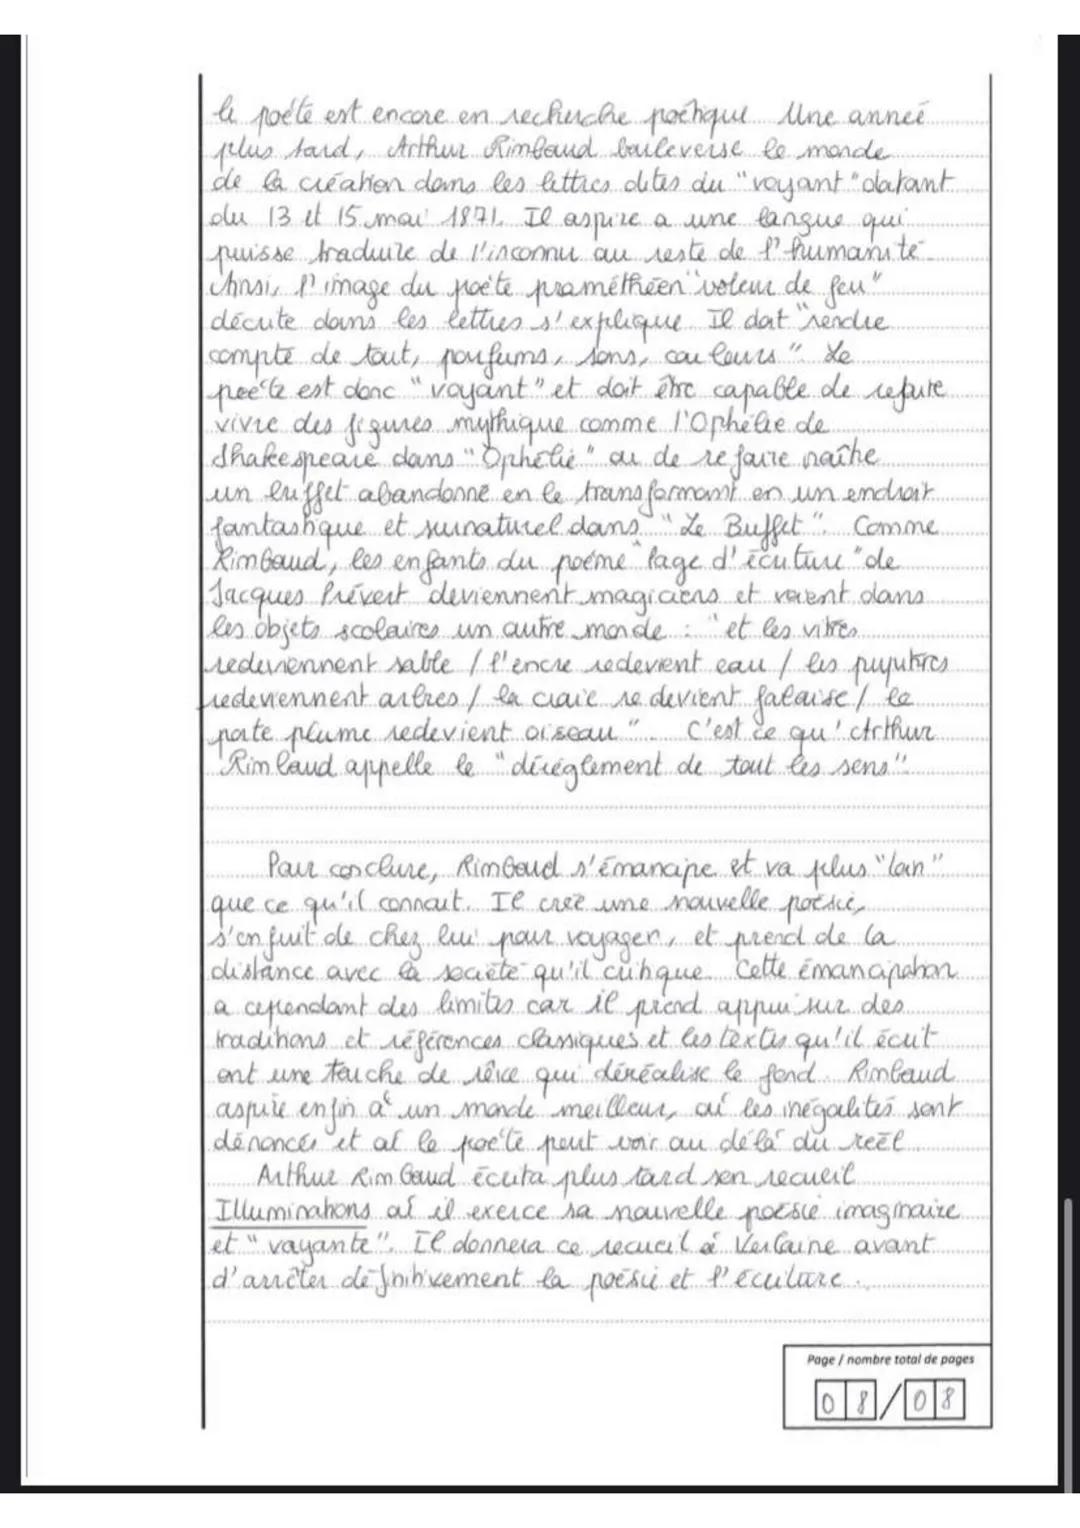 le poéte est encore en recherche poétique Une anneé
plus tard, Arthur Rimbaud bouleverse le monde
de la création dans les lettres dites du "voyant" datant
du 13 et 15 mai 1871. Il aspire a une langue qui
puisse traduire de l'inconnu au reste de l'humanité.
Ainsi, l'image du poète prométhéen "voleur de feu"
décrite dans les lettres s'explique. Il doit "rendre
compte de tout, parfums, sons, couleurs". Le
poète est donc "voyant" et doit être capable de refaire
vivre des figures mythique comme l'Ophélie de
Shakespeare dans "Ophélie" ou de refaire naître
un buffet abandonné en le transformant en un endroit
fantastique et surnaturel dans "Le Buffet". Comme
Rimbaud, les enfants du poème "Page d'écriture" de
Jacques Prévert deviennent magiciens et voient dans
les objets scolaires un autre monde : "et les vitres
redeviennent sable / l'encre redevient eau / les pupitres
redeviennent arbres / la craie redevient falaise / le
porte plume redevient oiseau". C'est ce qu'Arthur
Rimbaud appelle le "déréglement de tout les sens".
Pour conclure, Rimbaud s'émancipe et va plus "loin"
que ce qu'il connait. Il creé une nouvelle poésie,
s'enfuit de chez lui pour voyager, et prend de la
distance avec la société qu'il critique. Cette émancipation
a cependant des limites car il prend appui sur des
traditions et références classiques et les textes qu'il écrit
ont une touche de rêve qui déréalise le fond. Rimbaud
aspire enfin à un monde meilleur, où les inégalités sont
dénoncés et où le poète peut voir au délà du réel
Arthur Rimbaud écrira plus tard son recueil
Illuminations où il exerce sa nouvelle poésie imaginaire
et "voyante". Il donnera ce recueil à Verlaine avant
d'arrêter définitivement la poésie et l'écriture.
Page / nombre total de pages
08/08